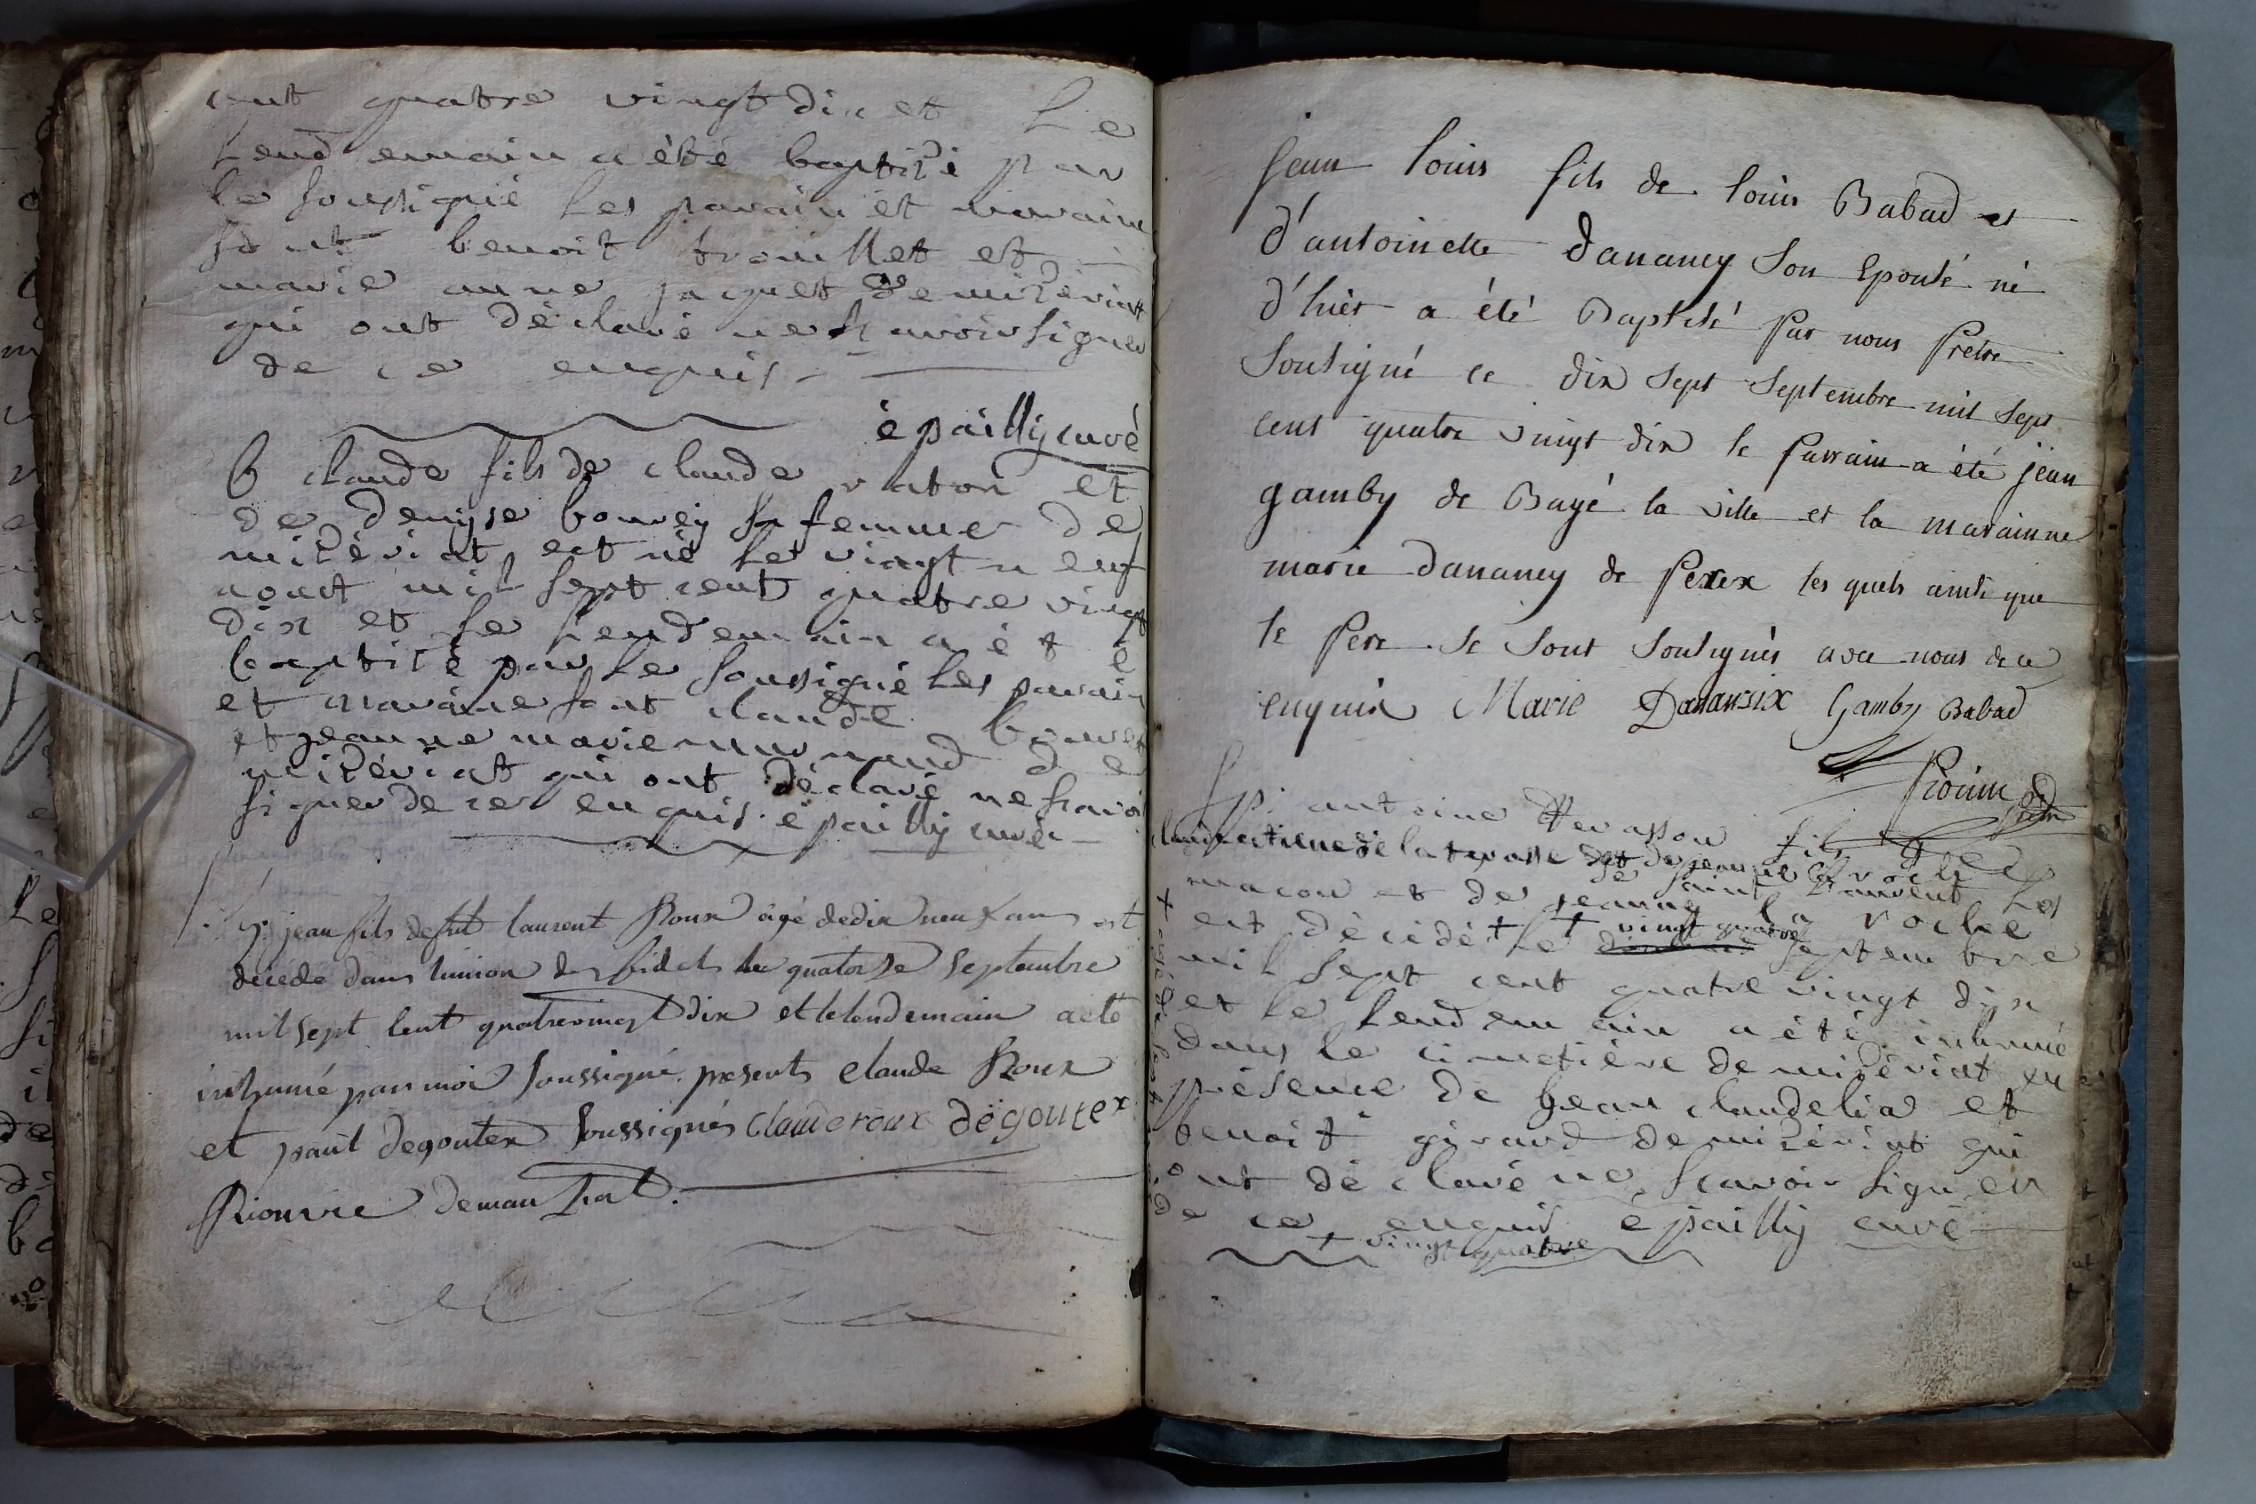 cent quatre vingt dix et Le
Lendemain a été baptisé par
le soussigné Les parain et maraine
sont benoit trouillet et
marie anne jaquet de miseriat
qui ont déclaré ne scavoir signer
de ce enquis
épailly curé
b claude fils de claude raton et
de denyse bourey sa femme de
mizériat est né Le vingt neuf
aoust mil sept cent quatre vingt
dix et Le Lendemain a été
baptisé par Le soussigné Les parain
et maraine sont claude bouret
et jeanne marie de
mizériat qui ont déclaré ne scavoir
signer de ce enquis. épailly curé
jean fils defut laurent Roux agé dedix neuf ans est
décédé dans lunion des fidels le quatorse septembre
mil sept cent quatrevingt dix et lelendemain aeté
inhumé par moi soussigné. presents claude Roux
et paul degoutex soussignés claude roux dégoutex
Riouvie
jean louis fils de louis Babad et
d'antoinette dananey son Epouse né
d'hier a été Baptisé par nous Prêtre
Sousigné ce dix sept septembre mil sept
cent quatre vingt dix le parrain a été jean
gamby de Bagé la ville et la marainne
marie dananey de Perex les quels ainsi que
le Pere se sont sousignés avec nous de ce
enquis Marie Gamby Babad
antoine fils
et de jeanne
macon et de jeanne La roche
est décédé + Le + vingt quatre septembre
mil sept cent quatre vingt dix
et Le Lendemain a été inhumé
dans Le cimetière de mizériat en
présence de jean claude et
benoit girard de mizériat qui
ont déclaré ne scavoir signer
de ce enquis épailly curé
+ vingt quatre